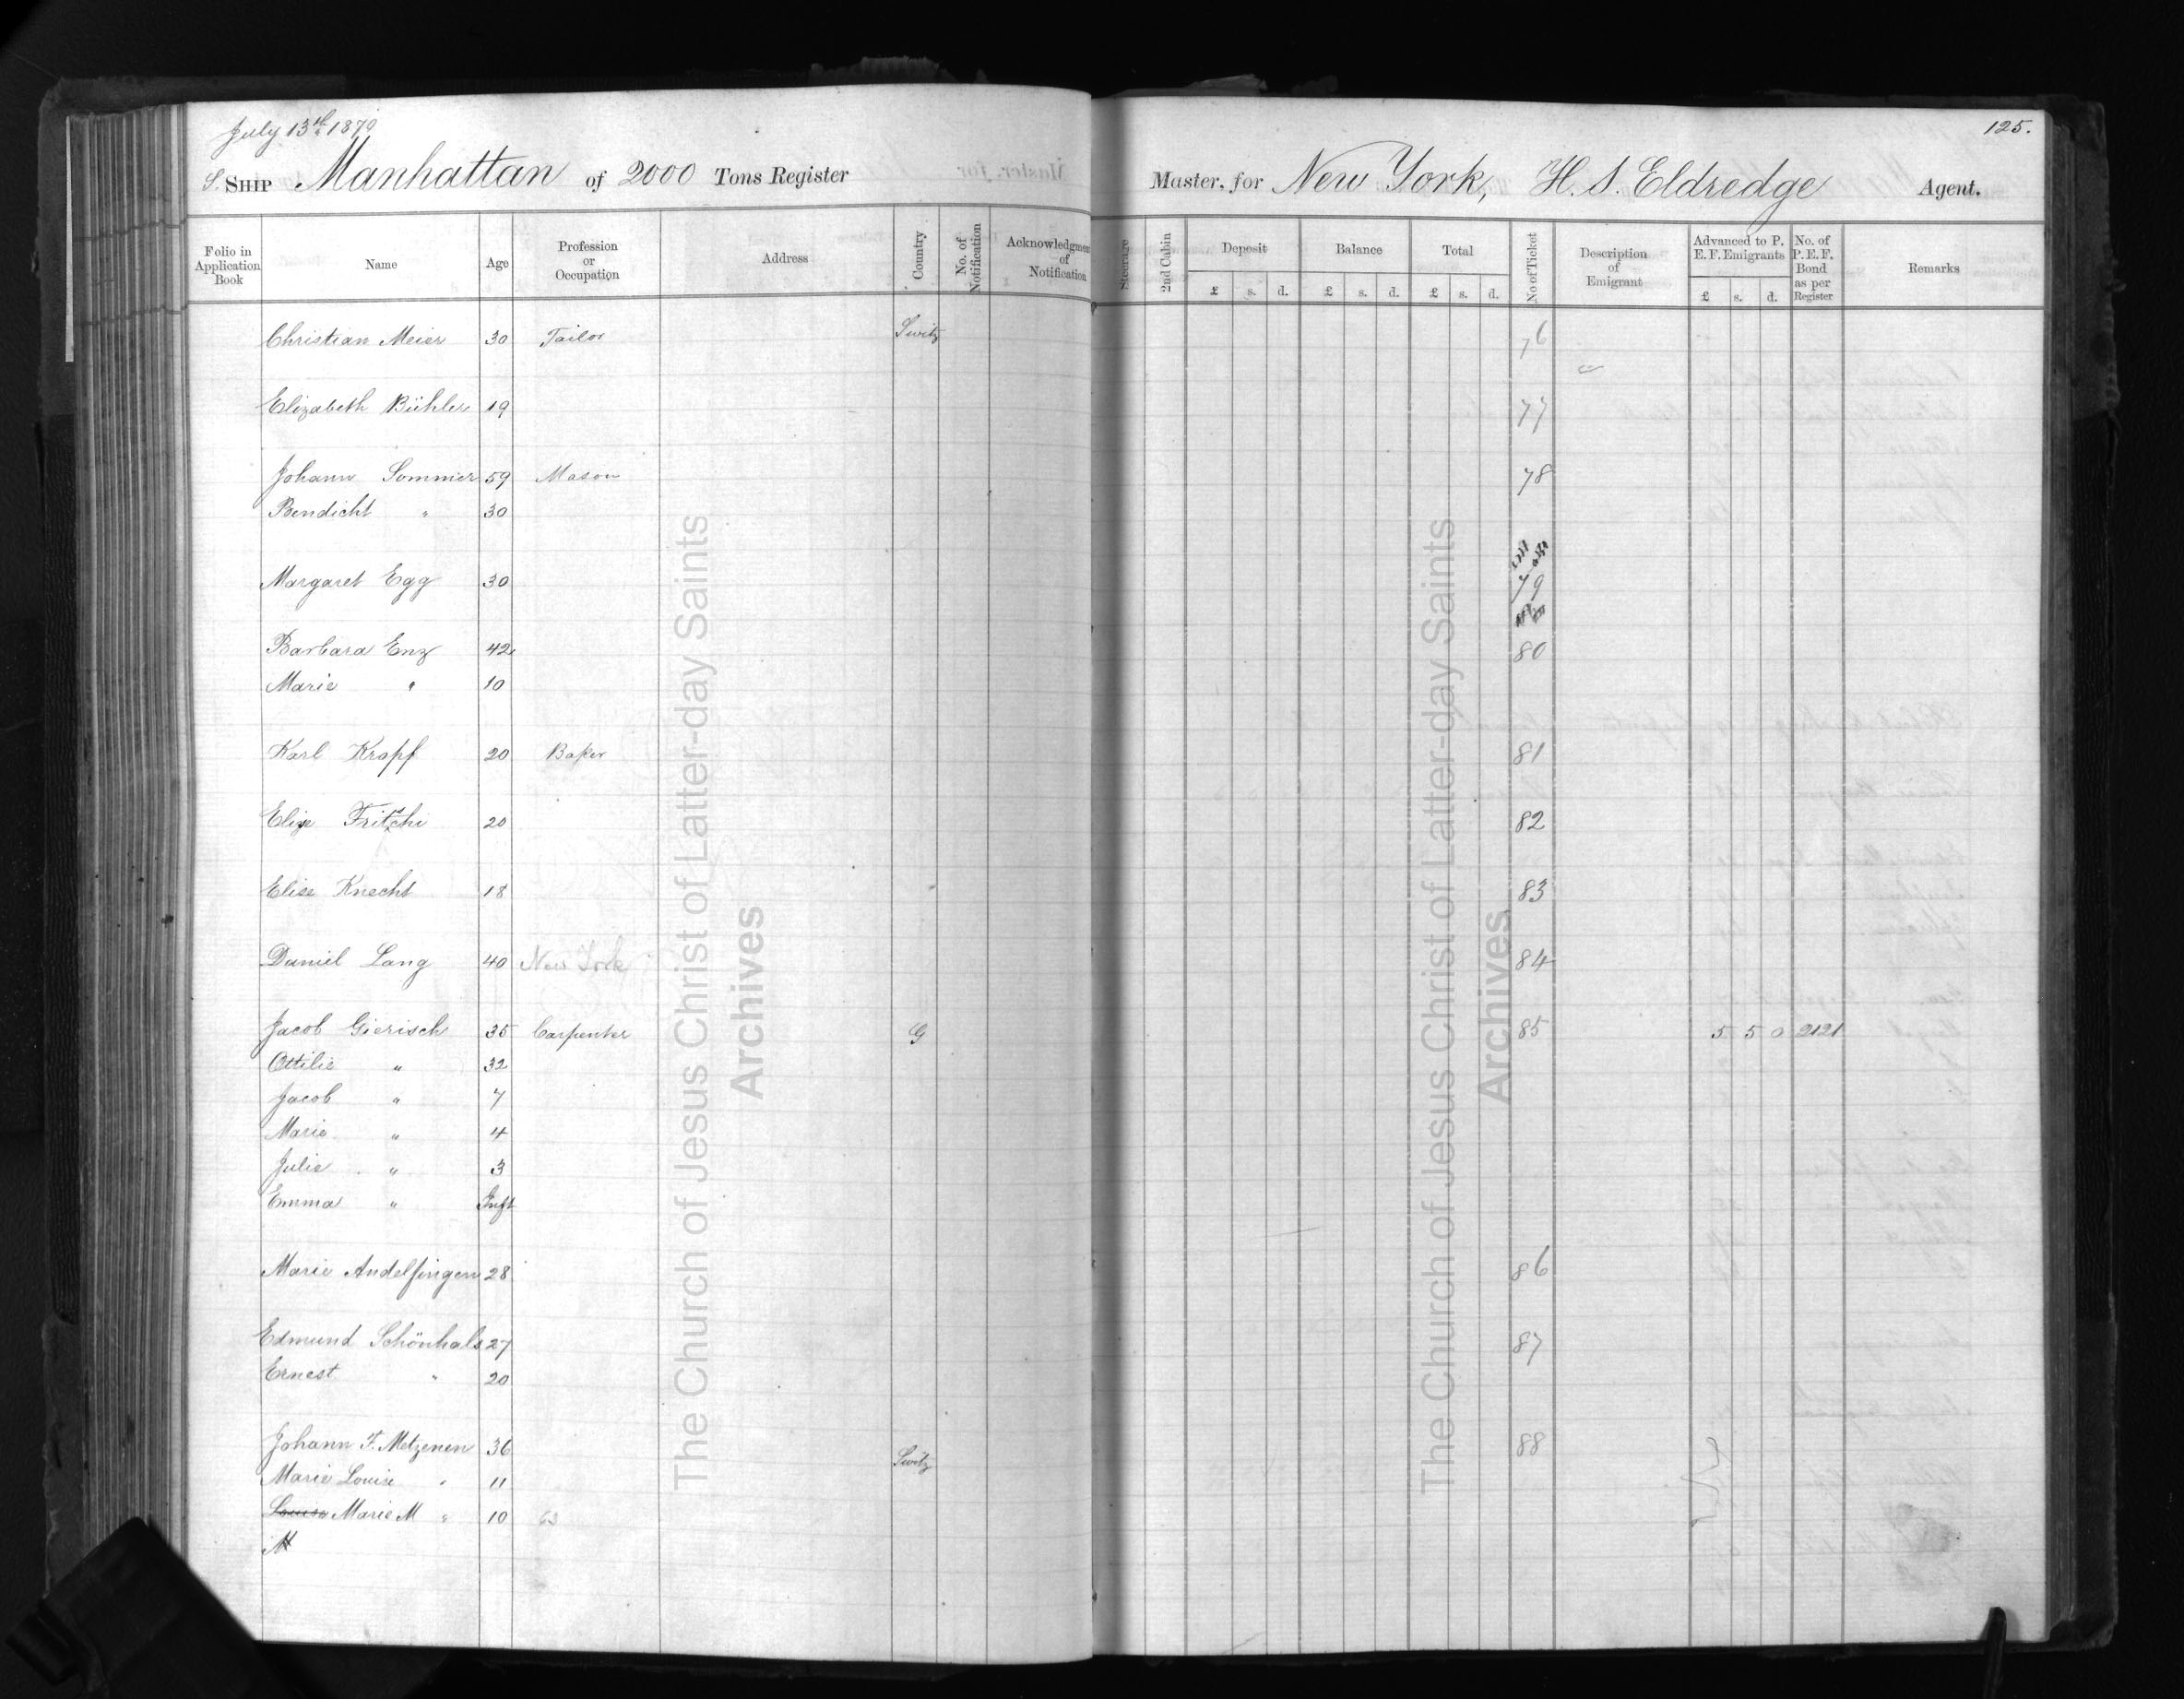 July 13th 1870
125.
S. SHIP Manhattan of 2000 Tons Register Master, for New York, H. S. Eldredge Agent.
Folio in Application Book Name Age Profession or Occupation Address Country No. of Notification Acknowledgment of Notification Steerage 2nd Cabin Deposit £ s. d. Balance £ s. d. Total £ s. d. No of Ticket Description of Emigrant Advanced to P. E. F. Emigrants £ s. d. No. of P. E. F. Bond as per Register Remarks
Christian Meier 30 Tailor Switz 76
Elizabeth Bühler 19 77
Johann Sommer 59 Mason 78
Bendicht " 30
Margaret Egg 30 79
Barbara Enz 42 80
Marie " 10
Karl Kropf 20 Baker 81
Elize Fritzchi 20 82
Elise Knecht 18 83
Daniel Lang 40 New York 84
Jacob Gierisch 35 Carpenter G 85 5 5 0 2121
Ottilie " 32
Jacob " 7
Marie " 4
Julie " 3
Emma " Inft
Marie Andelfingen 28 86
Edmund Schönhals 27 87
Ernest " 20
Johann F. Metzenen 36 Switz 88
Marie Louise " 11
Louisa Marie M " 10
M
The Church of Jesus Christ of Latter-day Saints
Archives
The Church of Jesus Christ of Latter-day Saints
Archives